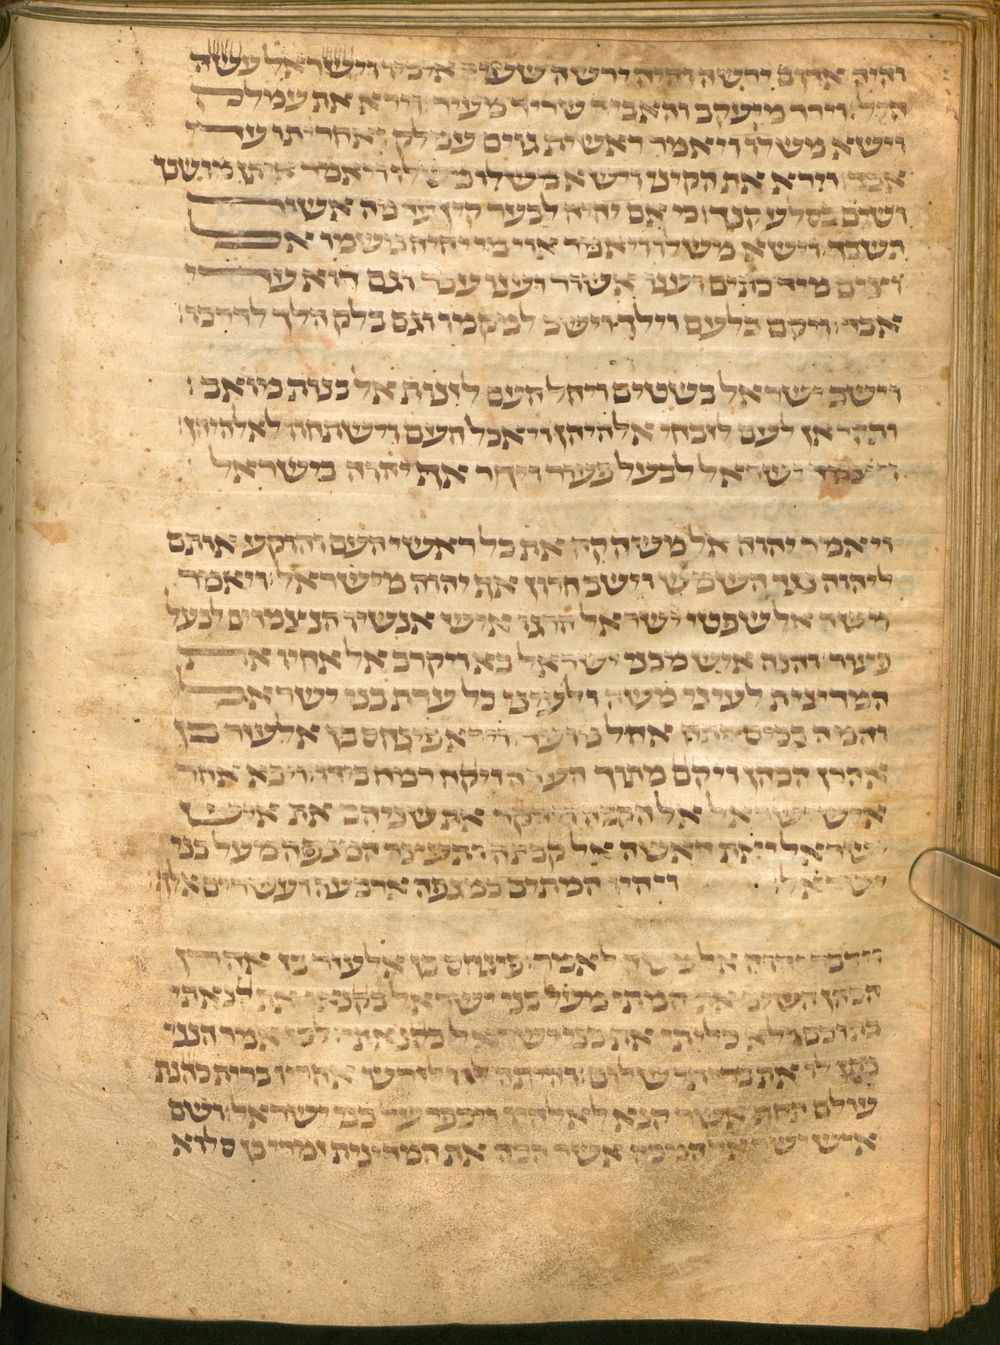 והיה אדום ירשה והיה ירשה שעיר איביו וישראל עשה
חיל וירד מיעקב והאביד שריד מעיר וירא את עמלק
וישא משלו ויאמר ראשית גוים עמלק ואחריתו עדי
אבד וירא את הקיני וישא משלו ויאמר איתן מושבך
ושים בסלע קנך כי אם יהיה לבער קין עד מה אשור
תשבך וישא משלו ויאמר אוי מי יחיה משמו אל
וצים מיד כתים וענו אשור וענו עבר וגם הוא עדי
אבד ויקם בלעם וילך וישב למקמו וגם בלק הלך לדרכו
וישב ישראל בשטים ויחל העם לזנות אל בנות מואב
ותקראן לעם לזבחי אלהיהן ויאכל העם וישתחוו לאלהיהן
ויצמד ישראל לבעל פעור ויחר אף יהוה בישראל
ויאמר יהוה אל משה קח את כל ראשי העם והוקע אותם
ליהוה נגד השמש וישב חרון אף יהוה מישראל ויאמר
משה אל שפטי ישראל הרגו איש אנשיו הנצמדים לבעל
פעור והנה איש מבני ישראל בא ויקרב אל אחיו את
המדינית לעיני משה ולעיני כל עדת בני ישראל
והמה בכים פתח אהל מועד וירא פינחס בן אלעזר בן
אהרן הכהן ויקם מתוך העדה ויקח רמח בידו ויבא אחר
איש ישראל אל הקבה וידקר את שניהם את איש
ישראל ואת האשה אל קבתה ותעצר המגפה מעל בני
ישראל ויהיו המתים במגפה ארבעה ועשרים אלף
וידבר יהוה אל משה לאמר פינחס בן אלעזר בן אהרן
הכהן השיב את חמתי מעל בני ישראל בקנאו את קנאתי
בתוכם ולא כליתי את בני ישראל בקנאתי לכן אמר הנני
נתן לו את בריתי שלום והיתה לו ולזרעו אחריו ברית כהנת
עולם תחת אשר קנא לאלהיו ויכפר על בני ישראל ושם
איש ישראל המכה אשר הכה את המדינית זמרי בן סלוא